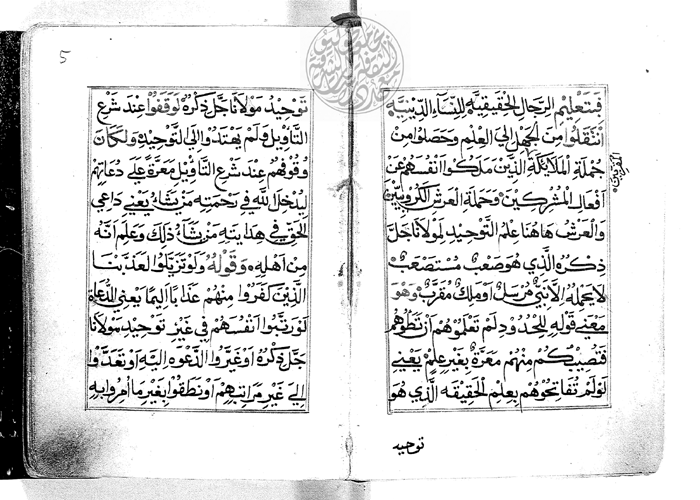 فبتعليم الرجال الحقيقيه للنساء الدينيه
انتقلوا من الجهل الي العلم وحصلوا من
جملة الملايكة الذين ملكوا انفسهم عن
افعال المشركين وحملة العرش الكروبيين
والعرش هاهنا علم التوحيد لمولانا جل
ذكره الذي هو صعب مستصعب
لا يحمله الا نبي مرسل او ملك مقرب وهو
معني قوله للحدود لم تعلموهم ان تطوهم
فتصيبكم منهم معرة بغير علم يعني
لو لم تفاتحوهم بعلم الحقيقه الذي هو
توحيد
5
توحيد مولانا جل ذكره لوقفوا عند شرع
التاويل ولم يهتدوا الي التوحيد ولكان
وقوفهم عند شرع التاويل معرة علي دعاتهم
ليدخل الله في رحمته من يشاء يعني داعي
الحق في هدايته من يشاء ذلك وعلم انه
من اهله وقوله ولو تزيلوا لعذبنا
الذين كفروا منهم عذابا اليما يعني الدعاة
لو رتبوا انفسهم في غير توحيد مولانا
جل ذكره او غيروا الدعوه اليه او تعدوا
الي غير مراتبهم او نطقوا بغير ما امروا به